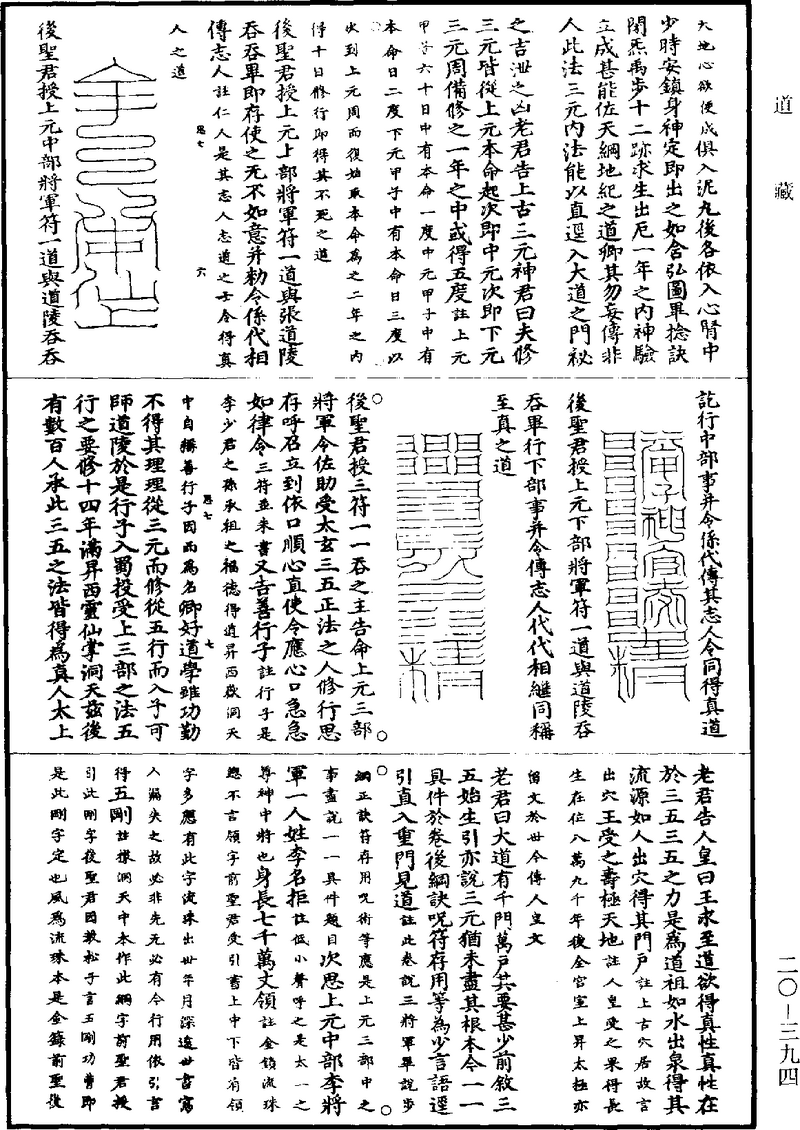 道藏
大地心欲便成俱入泥丸後各依入心腎中
少時安鎮身神定即出之如含弘圖畢捻訣
閉炁禹步十二跡求生出厄一年之內神驗
立成甚能佐天綱地紀之道卿其勿妄傳非
人此法三元內法能以直逕入大道之門祕
之吉泄之凶老君告上古三元神君曰夫修
三元皆從上元本命起次即中元次即下元
三元周備修之一年之中或得五度註上元
甲子六十日中有本命一度中元甲子中有
本命日二度下元甲子中有本命日三度以
次到上元周而復始取本命為之二年之內
得十日修行即得其不死之道
後聖君授上元上部將軍符一道與張道陵
吞吞畢即存使之无不如意并勑令係代相
傳志人註仁人是其志人志道之士令得真
思七
六
人之道
後聖君授上元中部將軍符一道與道陵吞吞
訖行中部事并令係代傳其志人令同得真道
後聖君授上元下部將軍符一道與道陵吞
吞畢行下部事并令傳志人代代相繼同稱
至真之道
後聖君授三符一一吞之主告命上元三部
將軍令佐助受太玄三五正法之人修行思
存呼召立到依口順心直使令應心口急急
如律令三符並朱書又告善行子註行子是
李少君之孫承祖之福德得道昇西嶽洞天
思七
七
中自擇善行子因而為名卿好道學雖功勤
不得其理理從三元而修從五行而入乎可
師道陵於是行子入蜀投受上三部之法五
行之要修十四年滿昇西靈仙掌洞天茲後
有數百人承此三五之法皆得為真人太上
老君告人皇曰王求至道欲得真性真性在
於三五三五之力是為道祖如水出泉得其
流源如人出穴得其門戶註上古穴居故言
出穴王受之壽極天地註人皇受之果得長
生在位八萬九千年後全宮室上昇太極亦
留文於世今傳人皇文
老君曰大道有千門萬戶其要甚少前敘三
五始生引亦說三元猶未盡其根本今一一
具件於卷後綱訣呪符存用等為少言語逕
引直入重門見道註此卷說三將軍畢說步
綱正訣符存用呪術等應是上元三部中之
事盡說一一具件題目次思上元中部李將
軍一人姓李名拒註低小聲呼之是太一之
尊神中將也身長七千萬丈領註金鎖流珠
總不言領字前聖君受引書上中下皆有領
字多應有此字流珠出世年月深遠世書寫
入漏失之故必非先元必有今行用依引言
得五剛註據洞天中本作此綱字前聖君授
引此剛字後聖君因教松子言五剛功曹即
是此剛字定也風為流珠本是金籙前聖後
二〇—三九四